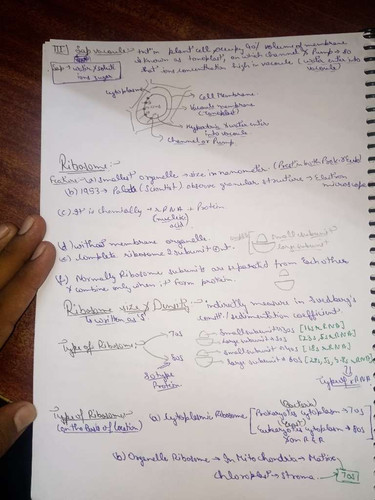 III Sap vacuole → In plant cell occupy 90% volume of membrane
is known as tonoplast, on which channel & Pump → so
Sap → water / soluti
ons sugar
that ions concentration high in vacuole (water enter into
vacuole)
cytoplasm
Cell Membrane
Vacuole membrane
(Tonoplast)
Hypertonic & water enter
into vacuole
Channel or Pump
Ribosome :-
Feature → (a) smallest organelle → size in nanometer (Present in both Prok. & Euk)
(b) 1953 → Palade (Scientist) observe granular structure → Electron
microscope
(c) It is chemically → rRNA + Protein
(nucleic
acid)
(d) without membrane organelle
(e) complete ribosome → 2 subunit
Small subunit
Large subunit
(f) Normally Ribosome subunits are separated from each other
& combine only when it form protein.
Ribosome size & Density → Indirectly measure in Svedberg's
↳ written as 'S'
unit / sedimentation coefficient
Type of Ribosome
70s
Small subunit → 30s [16s rRNA]
Large subunit → 50s
80s
Small subunit → 40s [18s rRNA]
Large subunit → 60s
Protein
Type of rRNA
Types of Ribosome
(on the Basis of location)
(a) Cytoplasmic Ribosome
(Bacteria)
Prokaryotes cytoplasm → 70s
Eukaryotes cytoplasm → 80s
on R.E.R
(b) Organelle Ribosome → In Mitochondria → Matrix
Chloroplast → stroma
70s